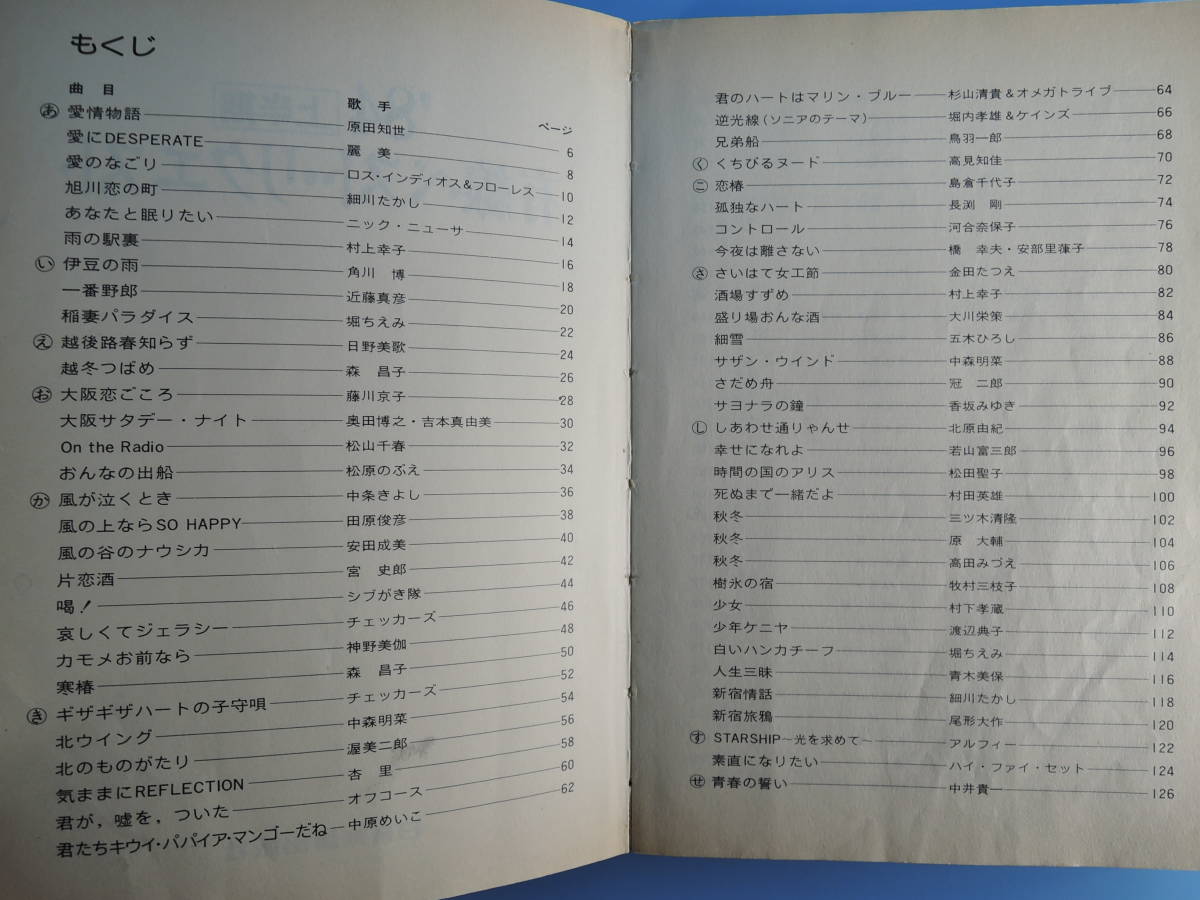 もくじ
曲目 歌手 ページ
あ 愛情物語 原田知世 6
愛にDESPERATE 麗美 8
愛のなごり ロス・インディオス&フローレス 10
旭川恋の町 細川たかし 12
あなたと眠りたい ニック・ニューサ 14
雨の駅裏 村上幸子 16
い 伊豆の雨 角川博 18
一番野郎 近藤真彦 20
稲妻パラダイス 堀ちえみ 22
え 越後路春知らず 日野美歌 24
越冬つばめ 森昌子 26
お 大阪恋ごころ 藤川京子 28
大阪サタデー・ナイト 奥田博之・吉本真由美 30
On the Radio 松山千春 32
おんなの出船 松原のぶえ 34
か 風が泣くとき 中条きよし 36
風の上ならSO HAPPY 田原俊彦 38
風の谷のナウシカ 安田成美 40
片恋酒 宮史郎 42
喝! シブがき隊 44
哀しくてジェラシー チェッカーズ 46
カモメお前なら 神野美伽 48
寒椿 森昌子 50
き ギザギザハートの子守唄 チェッカーズ 52
北ウイング 中森明菜 54
北のものがたり 渥美二郎 56
気ままにREFLECTION 杏里 58
君が,嘘を,ついた オフコース 60
君たちキウイ・パパイア・マンゴーだね 中原めいこ 62
君のハートはマリン・ブルー 杉山清貴&オメガトライブ 64
逆光線(ソニアのテーマ) 堀内孝雄&ケインズ 66
兄弟船 鳥羽一郎 68
く くちびるヌード 高見知佳 70
こ 恋椿 島倉千代子 72
孤独なハート 長渕剛 74
コントロール 河合奈保子 76
今夜は離さない 橋幸夫・安部里葎子 78
さ さいはて女工節 金田たつえ 80
酒場すずめ 村上幸子 82
盛り場おんな酒 大川栄策 84
細雪 五木ひろし 86
サザン・ウインド 中森明菜 88
さだめ舟 冠二郎 90
サヨナラの鐘 香坂みゆき 92
し しあわせ通りゃんせ 北原由紀 94
幸せになれよ 若山富三郎 96
時間の国のアリス 松田聖子 98
死ぬまで一緒だよ 村田英雄 100
秋冬 三ツ木清隆 102
秋冬 原大輔 104
秋冬 高田みづえ 106
樹氷の宿 牧村三枝子 108
少女 村下孝蔵 110
少年ケニヤ 渡辺典子 112
白いハンカチーフ 堀ちえみ 114
人生三昧 青木美保 116
新宿情話 細川たかし 118
新宿旅鴉 尾形大作 120
す STARSHIP〜光を求めて〜 アルフィー 122
素直になりたい ハイ・ファイ・セット 124
せ 青春の誓い 中井貴一 126